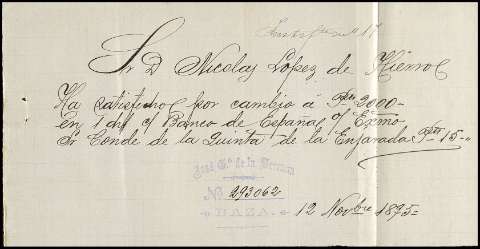 Justifte nº 17
Sr D Nicolas Lopez de Hierro
Ha satisfecho por cambio á Ptas 2000-
en 1 del c/ Banco de España o/ Exmo
Sr Conde de la Quinta de la Enjarada Ptas 15-"
José Gª de la Serrana
Nº 293062
BAZA
12 Novbre 1895=